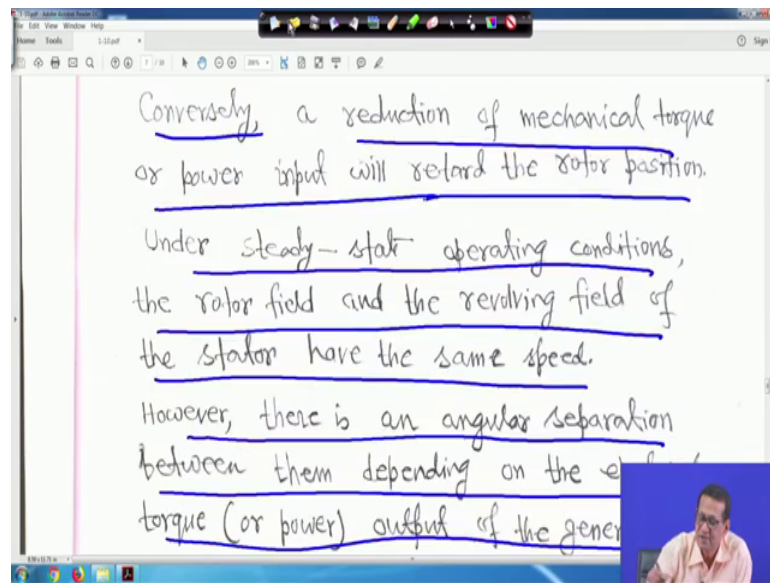 1-10.pdf - Adobe Acrobat Reader DC
File Edit View Window Help
Home Tools 1-10.pdf × Sign
Conversely, a reduction of mechanical torque
or power input will retard the rotor position.
Under steady-state operating conditions,
the rotor field and the revolving field of
the stator have the same speed.
However, there is an angular separation
between them depending on the
torque (or power) output of the